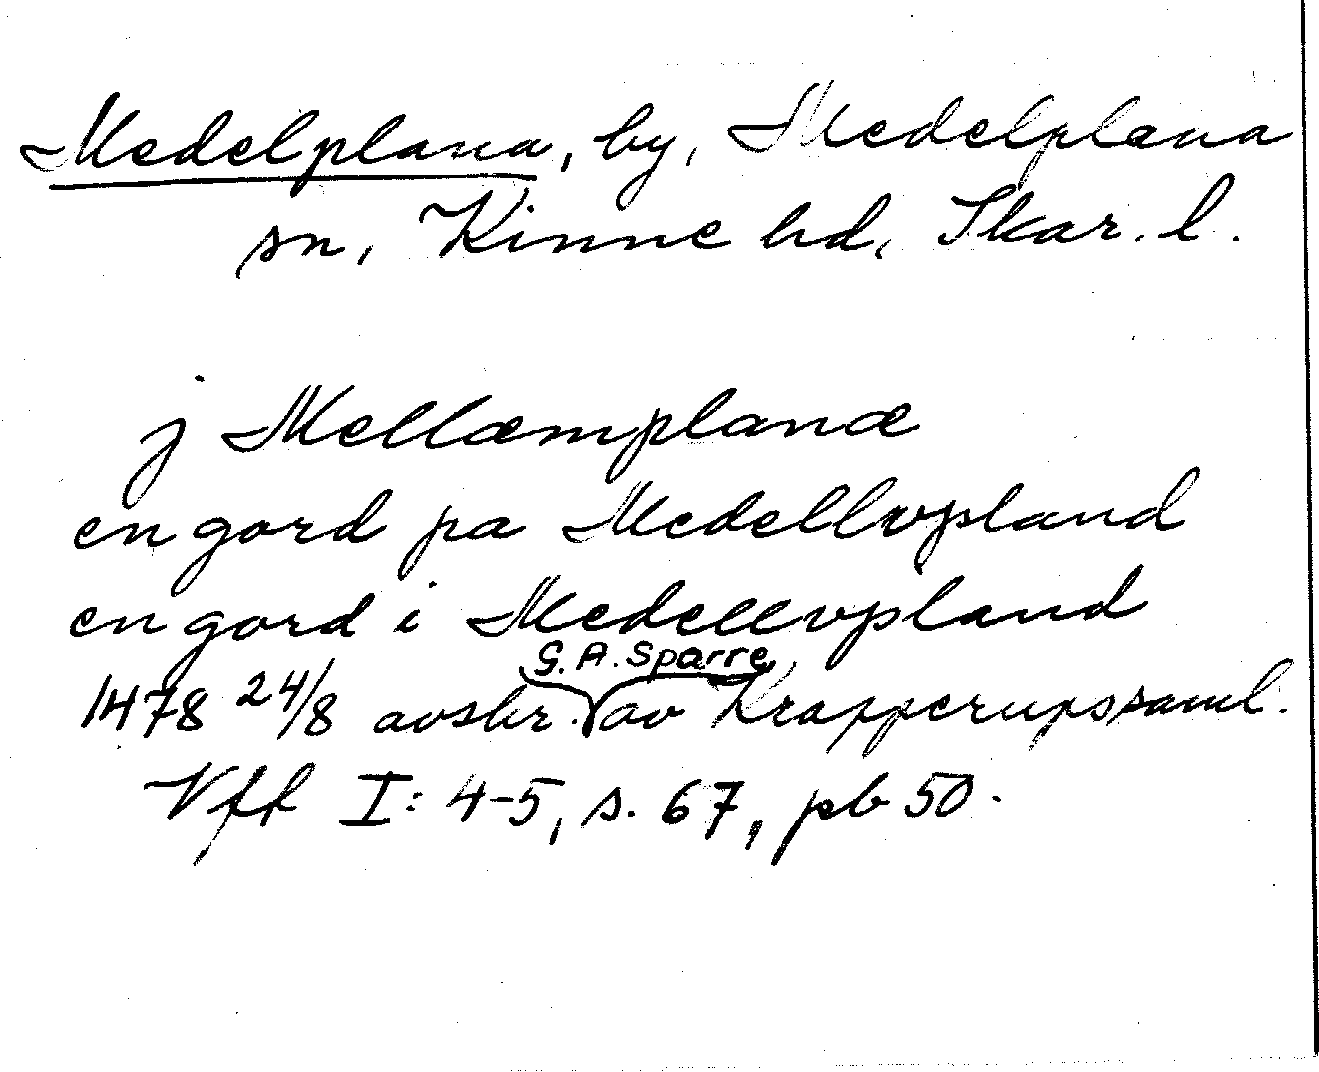 Medelplana, by, Medelplana
sn, Kinne hd, Skar. l.
j Mellæmplanæ
en gord pa Medellvpland
en gord i Medellvpland
G. A. Sparre,
1478 24/8 avskr. av Krapperupssaml.
Vff I: 4-5, s. 67, pb 50.